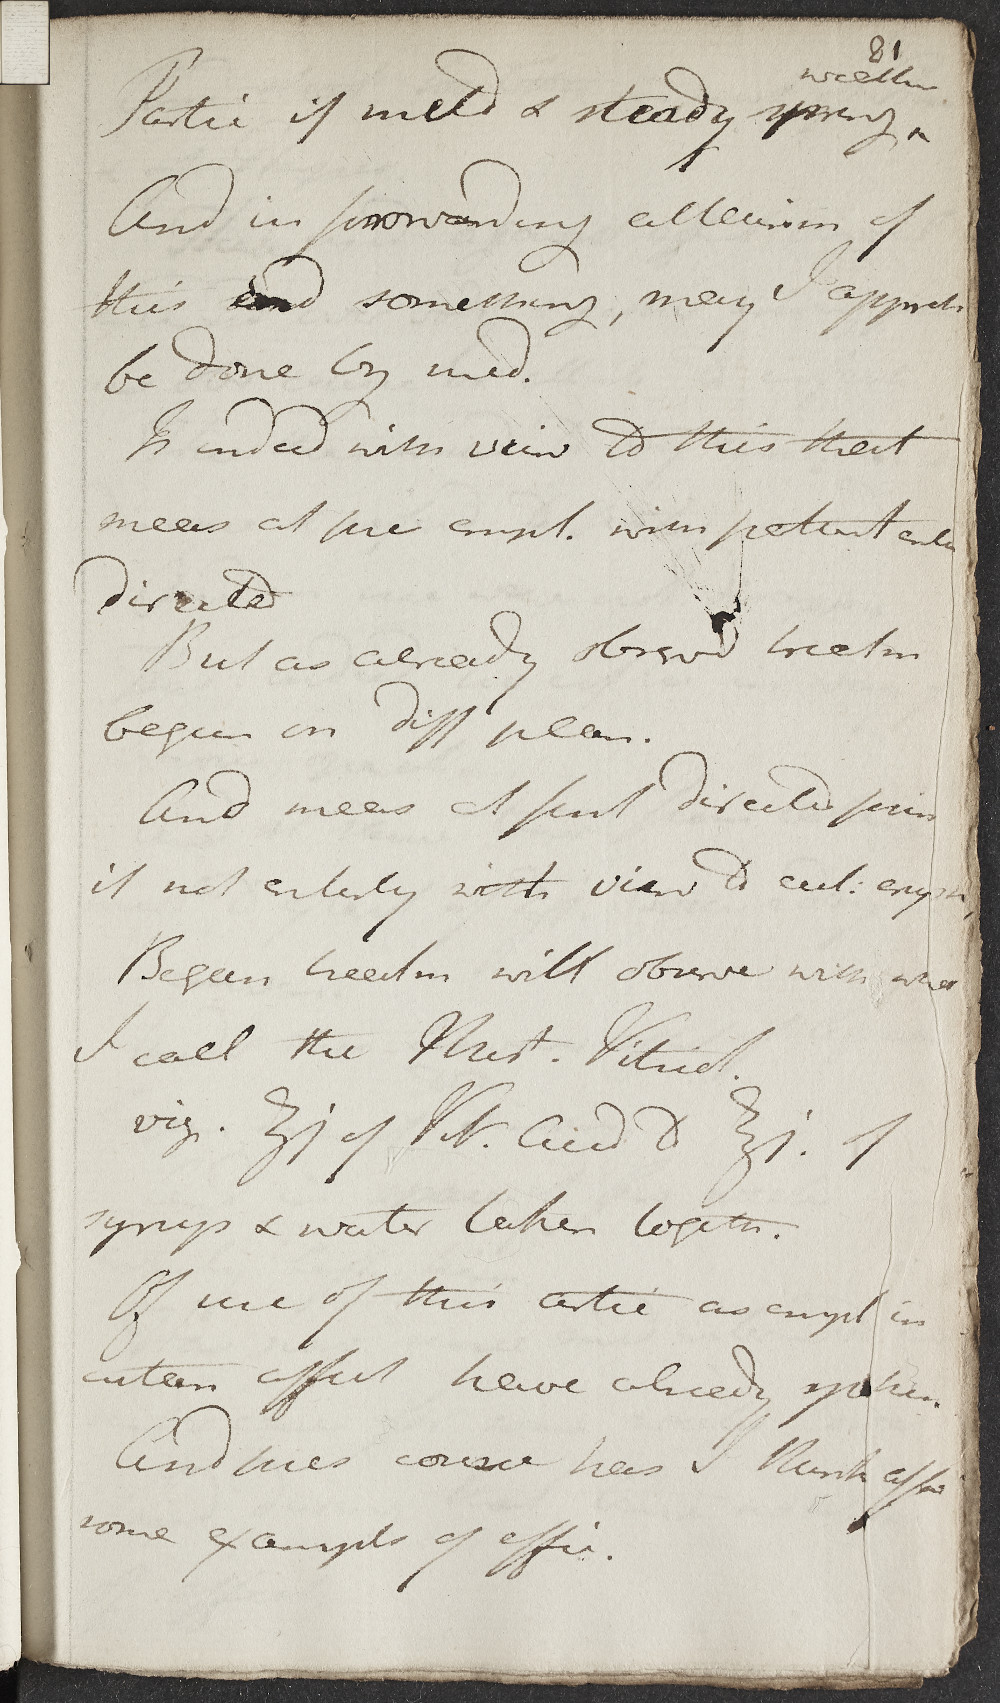 81
weathr
Partic if mild & steady spring
And in forwarding attainm of
this end something, may I appreh
be done by med.
Is indeed with view to this that
meas at pre empl. with patient
directed
But as already observd treatm
begun on diff plan.
And meas at first directed
if not entirely with view to cut: erupt
Began treatm will observe with what
I call the Vitriol.
viz. ʒj of Vit. Acid to ʒj. of
syrup & water taken togeth.
Of use of this artic as empl in
cutan affect have already spoken.
And pres course has I think affor
some exampls of effic.